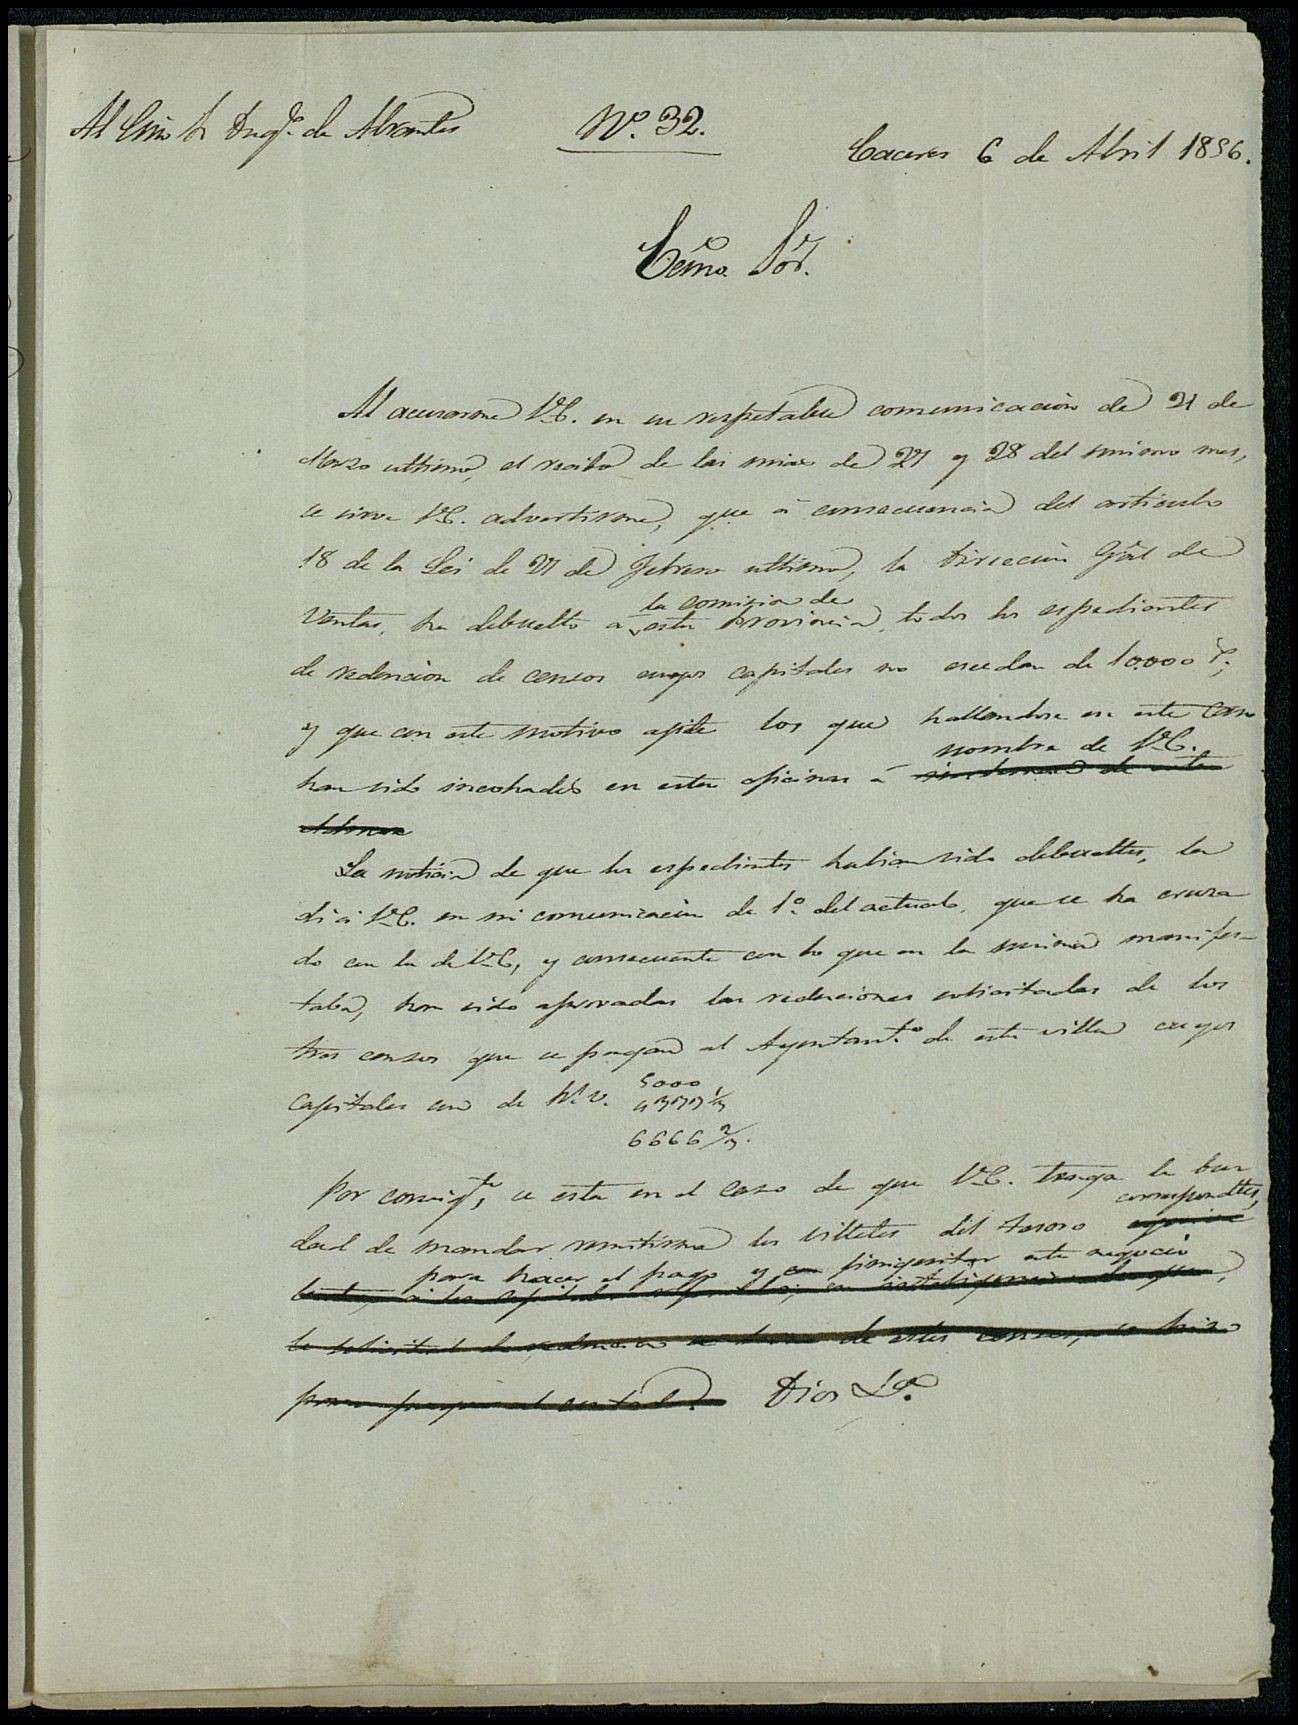 Al Exmo Sr Duqe. de Abrantes
Nº. 32.
Caceres 6 de Abril 1856.
Exmo. Sor.
Al acusarme V.E. en su respetable comunicacion de 21 de
Marzo ultimo, el recibo de las mias de 27 y 28 del mismo mes,
se sirve V.E. advertirme, que á consecuencia del articulo
18 de la Lei de 27 de Febrero ultimo, la Direccion Gral de
la comision de
Ventas, ha debuelto a esta Provincia, todos los espedientes
de redencion de censos cuyos capitales no escedan de 10.000 rs.,
y que con este motivo agite los que hallandose en este caso
nombre de V.E.
han sido incohados en estas oficinas á
La noticia de que los espedientes habian sido debueltos, la
di á V.E. en mi comunicacion de 1º. del actual, que se ha cruza
do con la de V.E., y consecuente con lo que en la misma manifes-
taba, han sido aprovadas las redenciones solicitadas de los
tres censos que se pagan al Ayuntamto. de esta villa cuyos
capitales son de Rl. v. 5000
4333 1/3
6666 2/3.
Por consigte., se está en el caso de que V.E. tenga la bon
dad de mandar remitirme los villetes del tesoro
correspondtes,
para hacer el pago y finiquitar este negocio
de estos censos,
Dios &ª.